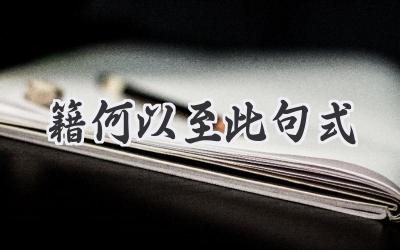 籍何以至此句式